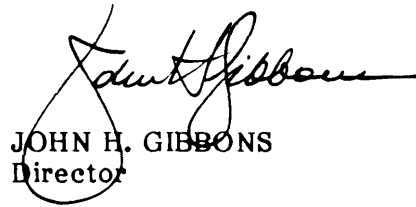 John H Gibbons
JOHN H. GIBBONS
Director